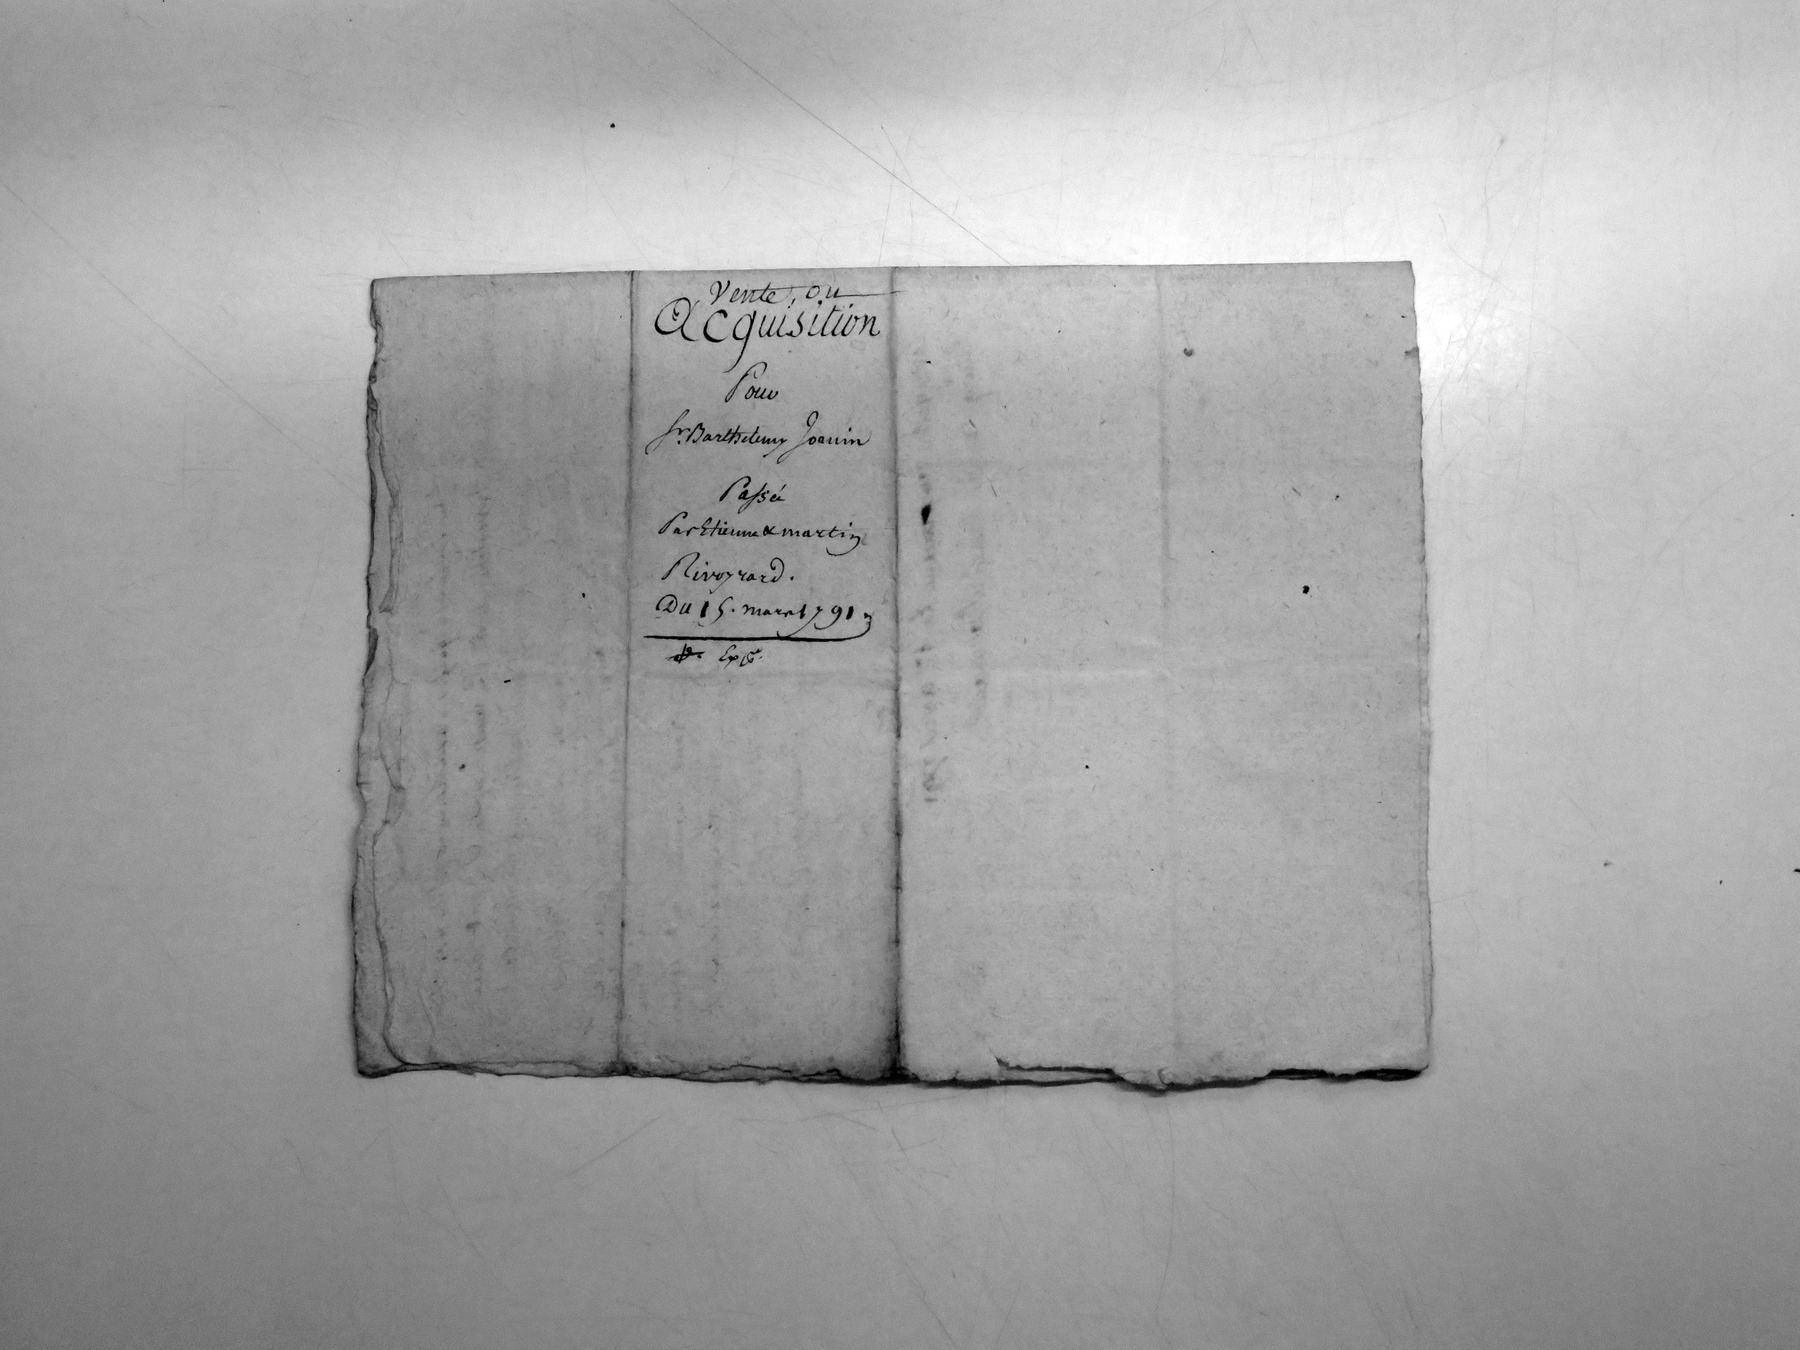 Vente, ou
Acquisition
Pour
Sr. Barthelemy Joanin
Passée
Par Etienne & martin
Rivoyrard.
Du 15. mars 1791